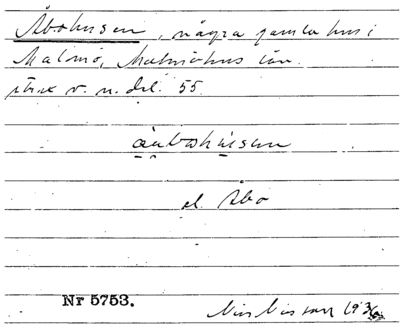 Åbohusen, några gamla hus i
Malmö, Malmöhus län.
v. n. del. 55
el. Åbo
Nr 5753.
Nils Nilsson 1936